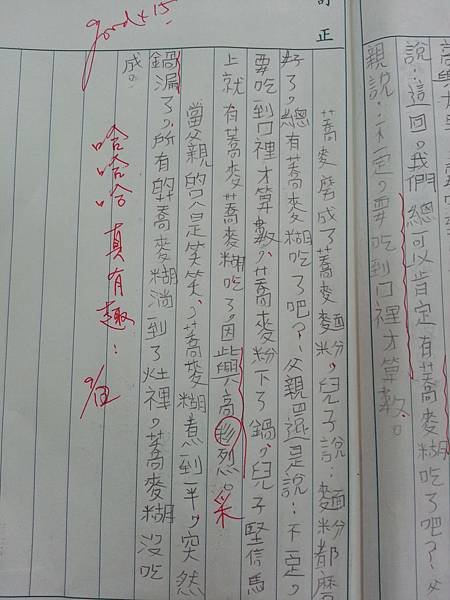 說:這回,我們總可以肯定有蕎麥糊吃了吧?父
親說:不一定,要吃到口裡才算數。
訂正
蕎麥磨成了蕎麥麵粉,兒子說:麵粉都磨
好了,總有蕎麥糊吃了吧?父親還是說:不定,
要吃到口裡才算數、蕎麥粉下了鍋,兒子堅信馬
上就有蕎麥蕎麥糊吃了,因興高彩烈。采
當父親的只是笑笑、蕎麥糊煮到一半,突然
鍋漏了,所有的蕎麥糊淌到了灶裡。蕎麥糊沒吃
成。
good+15
哈哈哈真有趣!